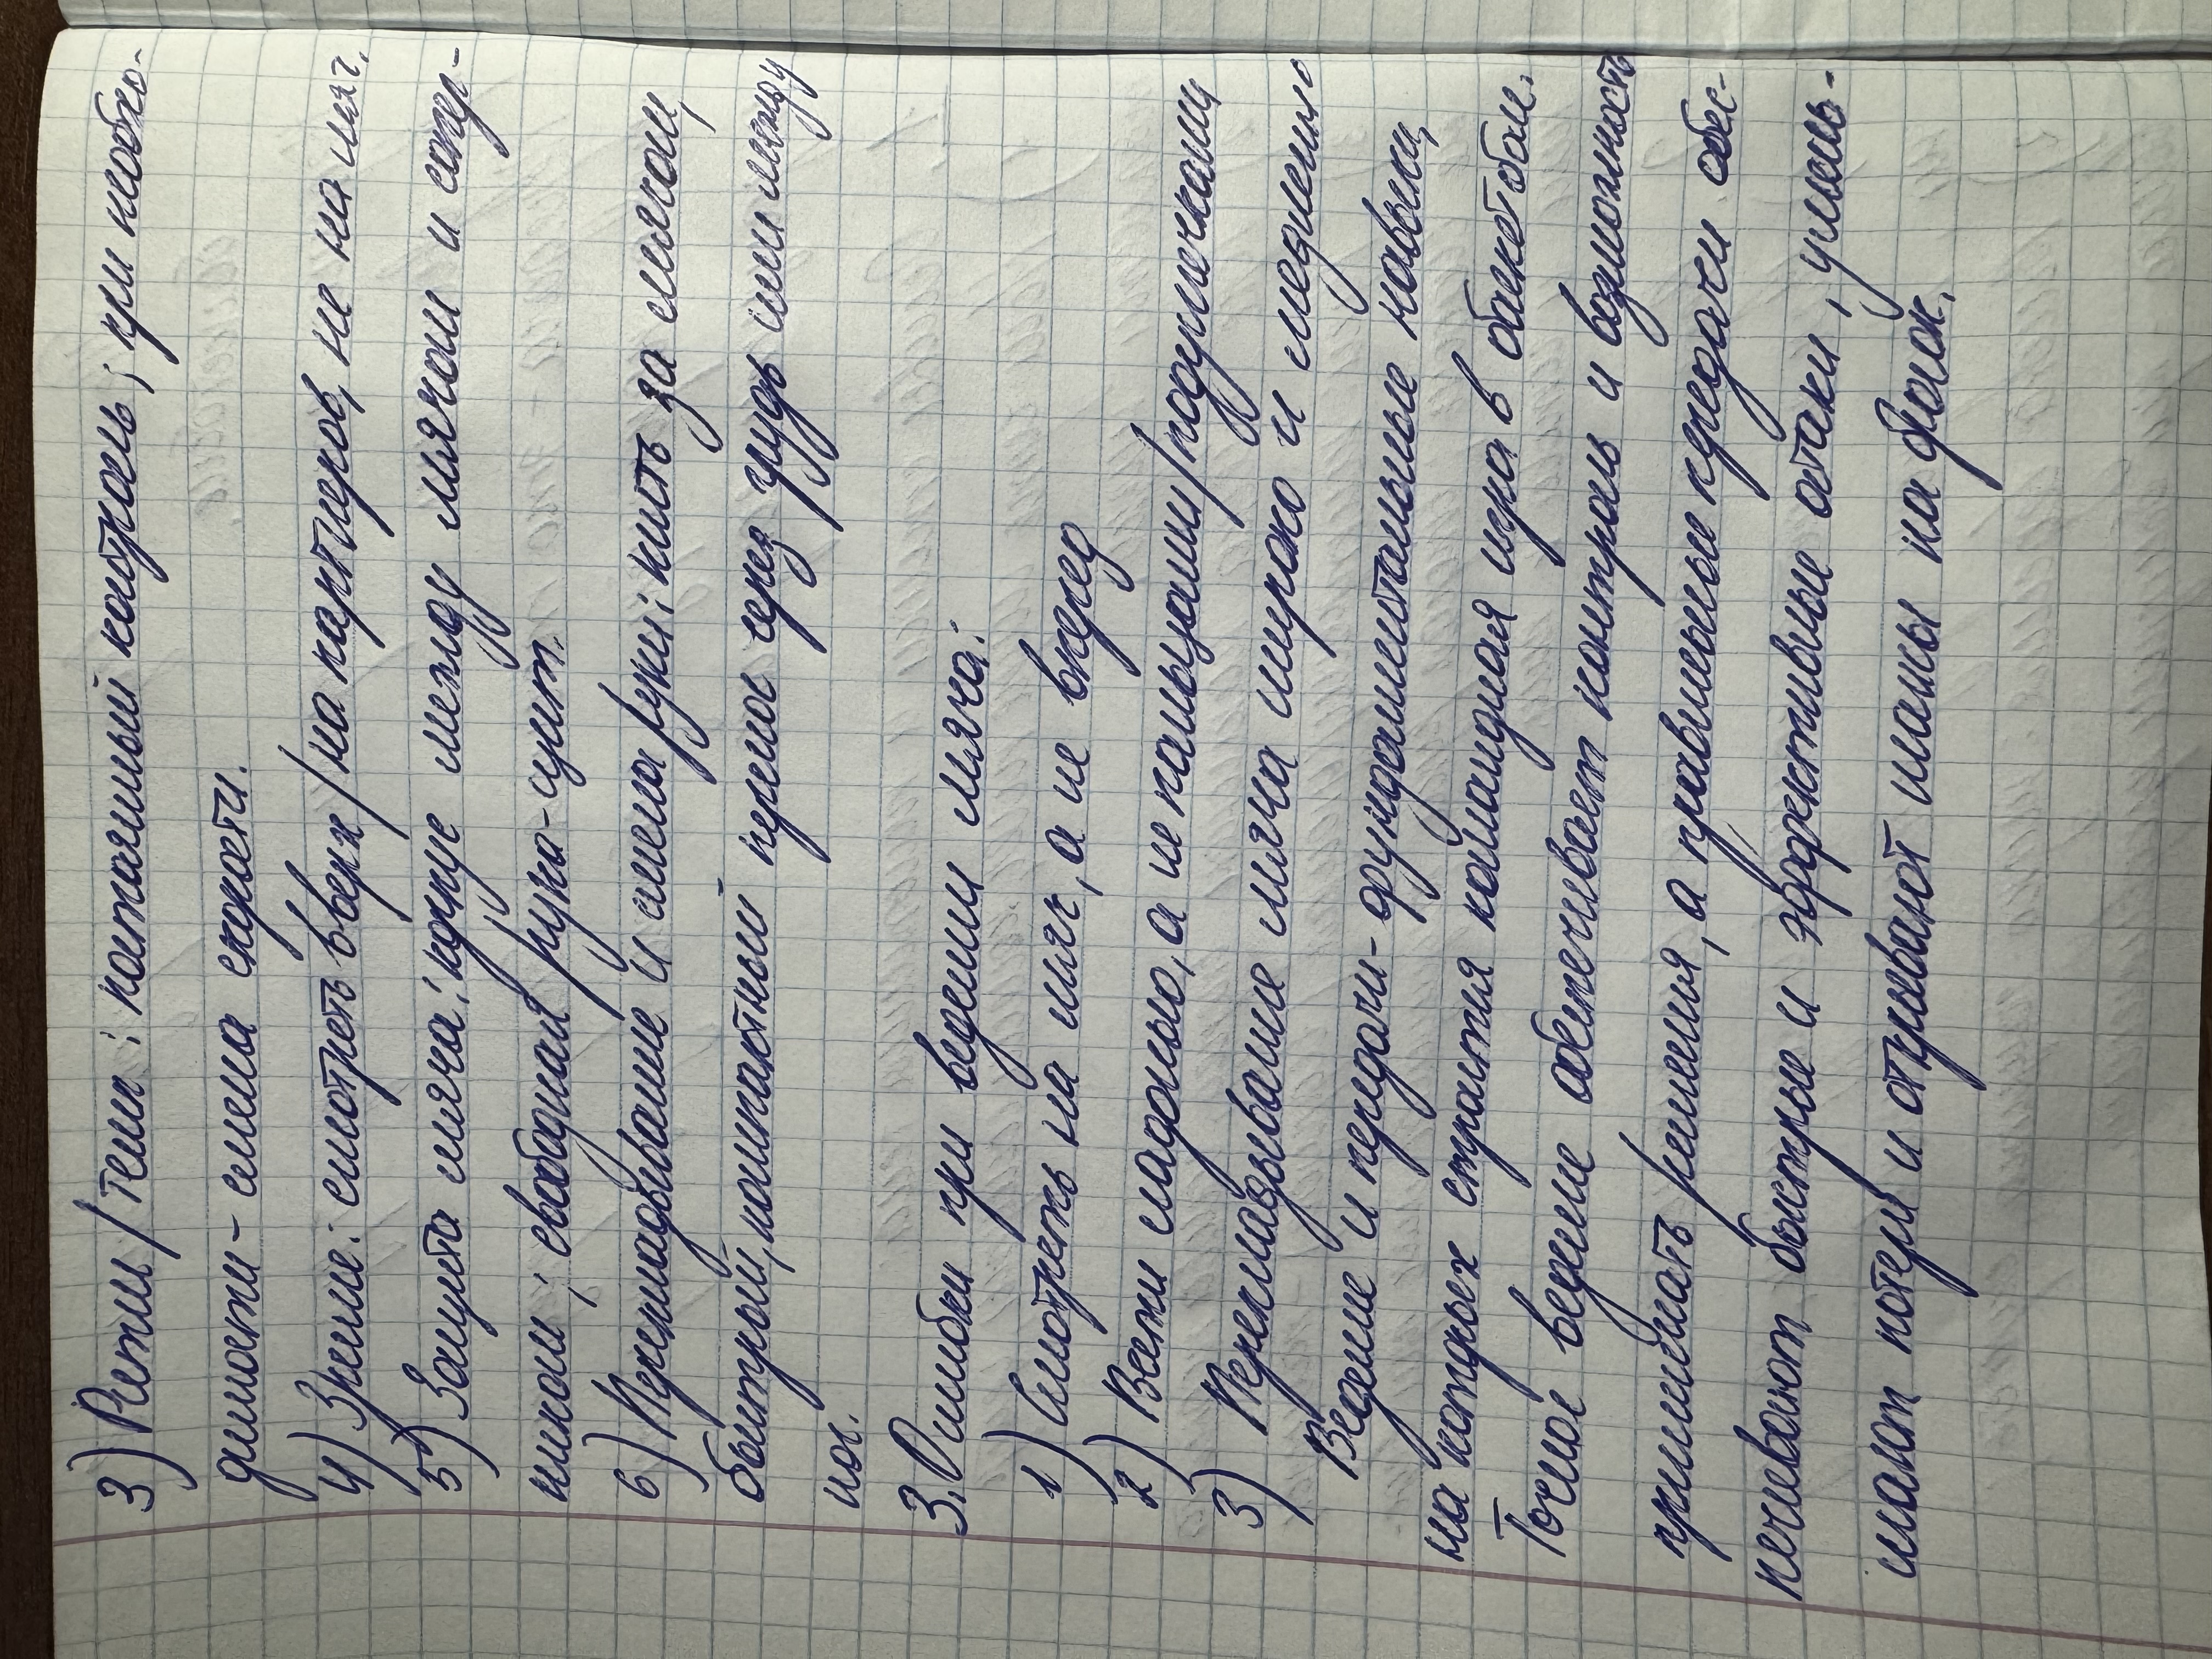 3) Ритм/темп: постоянный контроль; при необхо-
димости - смена скорости.
4) Зрение: смотреть вверх/на партнеров, не на мяч.
5) Защита мяча: корпус между мячом и сопер-
ником; свободная рука-щит.
6) Перекладывание и смена руки: кисть за мячом,
быстрый, компактный перенос через грудь или между
ног.
3. Ошибки при ведении мяча:
1) Смотреть на мяч, а не вперед
2) Вести ладонью, а не пальцами/подушечками
3) Перекладывание мяча широко и медленно
Ведение и передачи - фундаментальные навыки,
на которых строится командная игра в баскетбол.
Точное ведение обеспечивает контроль и возможность
принимать решения, а правильные передачи обес-
печивают быстрые и эффективные атаки, умень-
шают потери и открывают шансы на бросок.